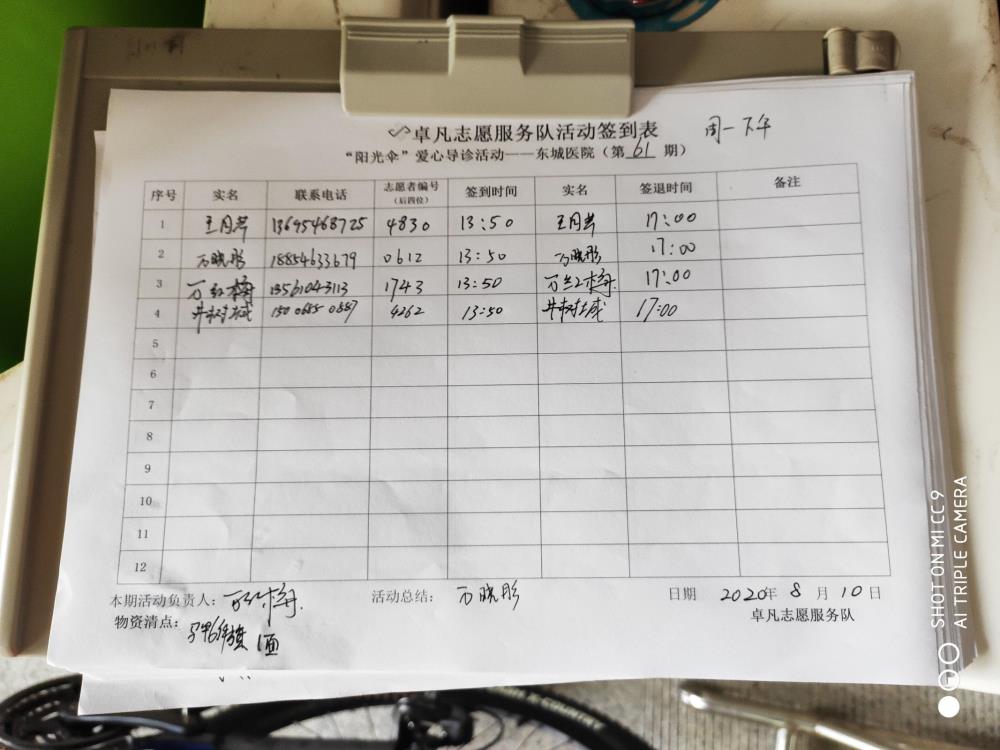 卓凡志愿服务队活动签到表 周一下午
“阳光伞”爱心导诊活动——东城医院（第 61 期）
序号 实名 联系电话 志愿者编号（后四位） 签到时间 实名 签退时间 备注
1 王月芹 13695468725 4830 13:50 王月芹 17:00
2 万晓彤 18854633679 0612 13:50 万晓彤 17:00
3 万红梅 13561043113 1743 13:50 万红梅 17:00
4 井树城 150 0685 0887 4262 13:50 井树城 17:00
5
6
7
8
9
10
11
12
本期活动负责人：万红梅 活动总结：万晓彤 日期 2020年 8 月 10 日
物资清点：旗 1面 卓凡志愿服务队
SHOT ON MI CC 9
AI TRIPLE CAMERA